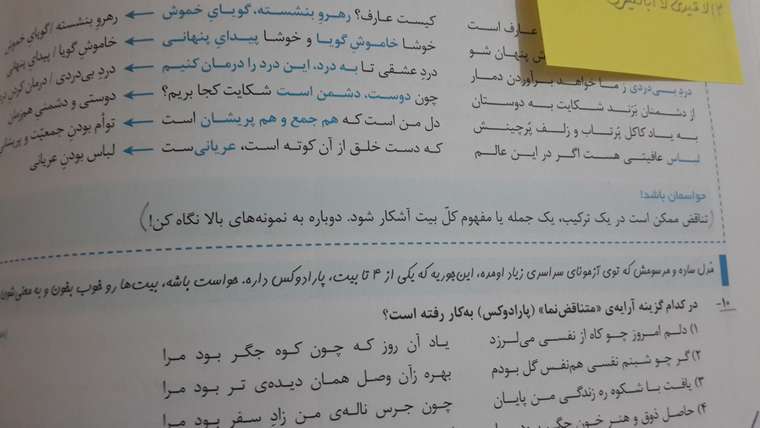 عارف است کیست عارف؟ رهرو بنشسته، گویای خموش ← رهرو بنشسته / گویای خموش
پنهان شو خوشا خاموش گویا و خوشا پیدای پنهانی ← خاموش گویا / پیدای پنهانی
درد بی‌دردی ز ما خواهد برآوردن دمار درد عشقی تا به درد، این درد را درمان کنیم ← درد بی‌دردی / درمان کردن
از دشمنان برند شکایت به دوستان چون دوست، دشمن است شکایت کجا بریم؟ ← دوستی و دشمنی هم‌زمان
به یاد کاکل پرتاب و زلف پرچینش دل من است که هم جمع و هم پریشان است ← توأم بودن جمعیّت و پریشانی
لباس عافیتی هست اگر در این عالم که دست خلق از آن کوته است، عریانی‌ست ← لباس بودن عریانی
حواسمان باشد!
(تناقض ممکن است در یک ترکیب، یک جمله یا مفهوم کلّ بیت آشکار شود. دوباره به نمونه‌های بالا نگاه کن!)
مدل ساده و مرسومش که توی آزمونای سراسری زیاد اومده، این‌جوریه که یکی از ۴ تا بیت، پارادوکس داره. حواست باشه، بیت‌ها رو خوب بخون و به معنی‌شون
۱۰- در کدام گزینه آرایه‌ی «متناقض‌نما» (پارادوکس) به‌کار رفته است؟
۱) دلم امروز چو کاه از نفسی می‌لرزد یاد آن روز که چون کوه جگر بود مرا
۲) گر چو شبنم نفسی هم‌نفس گل بودم بهره زآن وصل همان دیده‌ی تر بود مرا
۳) یافت با شکوه ره زندگی من پایان چون جرس ناله‌ی من زاد سفر بود مرا
۴) حاصل ذوق و هنر خون جگر بود مرا